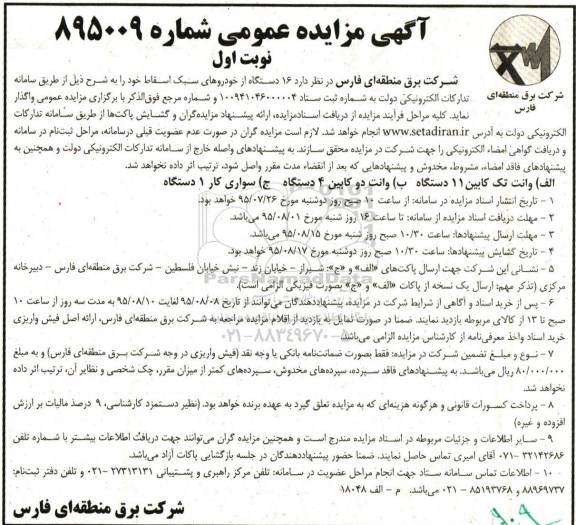 آگهی مزایده عمومی شماره ۸۹۵۰۰۹
نوبت اول
شرکت برق منطقه‌ای
فارس
شرکت برق منطقه‌ای فارس در نظر دارد ۱۶ دستگاه از خودروهای سبک اسقاط خود را به شرح ذیل از طریق سامانه
تدارکات الکترونیکی دولت به شماره ثبت ستاد ۱۰۰۹۴۱۰۴۶۰۰۰۰۰۴ و شماره مرجع فوق‌الذکر با برگزاری مزایده عمومی واگذار
نماید. کلیه مراحل فرآیند مزایده از دریافت اسنادمزایده، ارائه پیشنهاد مزایده‌گران و گشایش پاکت‌ها از طریق سامانه تدارکات
الکترونیکی دولت به آدرس www.setadiran.ir انجام خواهد شد. لازم است مزایده گران در صورت عدم عضویت قبلی درسامانه، مراحل ثبت‌نام در سامانه
و دریافت گواهی امضاء الکترونیکی را جهت شرکت در مزایده محقق سازند. به پیشنهادهای واصله خارج از سامانه تدارکات الکترونیکی دولت و همچنین به
پیشنهادهای فاقد امضاء، مشروط، مخدوش و پیشنهادهایی که بعد از انقضاء مدت مقرر واصل شود، ترتیب اثر داده نخواهد شد.
الف) وانت تک کابین ۱۱ دستگاه ب) وانت دو کابین ۴ دستگاه ج) سواری کار ۱ دستگاه
۱ - تاریخ انتشار اسناد مزایده در سامانه: از ساعت ۱۰ صبح روز دوشنبه مورخ ۹۵/۰۷/۲۶ خواهد بود.
۲ - مهلت دریافت اسناد مزایده از سامانه: تا ساعت ۱۶ روز شنبه مورخ ۹۵/۰۸/۰۱ می‌باشد.
۳ - مهلت ارسال پیشنهادها: ساعت ۱۰/۳۰ صبح روز شنبه مورخ ۹۵/۰۸/۱۵ می‌باشد.
۴ - تاریخ گشایش پیشنهادها: ساعت ۱۰/۳۰ صبح روز دوشنبه مورخ ۹۵/۰۸/۱۷ خواهد بود.
۵ - نشانی این شرکت جهت ارسال پاکت‌های «الف» و «ج»: شیراز - خیابان زند - نبش خیابان فلسطین - شرکت برق منطقه‌ای فارس - دبیرخانه
مرکزی (تذکر مهم: ارسال یک نسخه از پاکات «الف» و «ج» بصورت فیزیکی الزامی است).
۶ - پس از خرید اسناد و آگاهی از شرایط شرکت در مزایده، پیشنهاددهندگان می‌توانند از تاریخ ۹۵/۰۸/۰۸ لغایت ۹۵/۰۸/۱۰ به مدت سه روز از ساعت ۱۰
صبح تا ۱۳ از کالای مربوطه بازدید نمایند. ضمنا در صورت تمایل به بازدید از اقلام مزایده مراجعه به شرکت برق منطقه‌ای فارس، ارائه اصل فیش واریزی
خرید اسناد واخذ معرفی‌نامه از کارشناس مزایده الزامی می‌باشد.
۷ - نوع و مبلغ تضمین شرکت در مزایده: فقط بصورت ضمانت‌نامه بانکی یا وجه نقد (فیش واریزی در وجه شرکت برق منطقه‌ای فارس) و به مبلغ
۸۰/۰۰۰/۰۰۰ ریال می‌باشد. به پیشنهادهای فاقد سپرده، سپرده‌های مخدوش، سپرده‌های کمتر از میزان مقرر، چک شخصی و نظایر آن، ترتیب اثر داده
نخواهد شد.
۸ - پرداخت کسورات قانونی و هرگونه هزینه‌ای که به مزایده تعلق گیرد به عهده برنده خواهد بود. (نظیر دستمزد کارشناسی، ۹ درصد مالیات بر ارزش
افزوده و غیره)
۹ - سایر اطلاعات و جزئیات مربوطه در اسناد مزایده مندرج است و همچنین مزایده گران می‌توانند جهت دریافت اطلاعات بیشتر با شماره تلفن
۳۲۱۴۲۶۸۶-۰۷۱ آقای امیری تماس حاصل نمایند. ضمنا حضور پیشنهاددهندگان در جلسه بازگشایی پاکات آزاد می‌باشد.
۱۰ - اطلاعات تماس سامانه ستاد جهت انجام مراحل عضویت در سامانه: تلفن مرکز راهبری و پشتیبانی ۲۷۳۱۳۱۳۱-۰۲۱ و تلفن دفتر ثبت‌نام:
۸۸۹۶۹۷۳۷ و ۸۵۱۹۳۷۶۸ - ۰۲۱ می‌باشد. م - الف ۱۸۰۴۸
شرکت برق منطقه‌ای فارس
ParsNamadData
۰۲۱-۸۸۳۴۹۶۷۰-۵